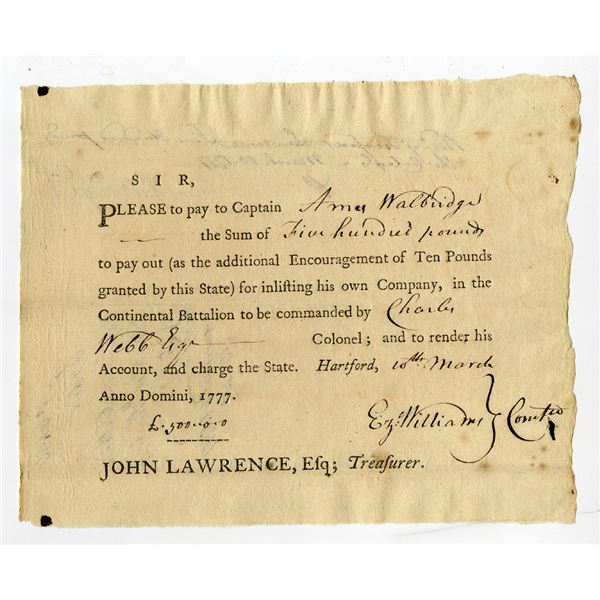 SIR,
PLEASE to pay to Captain Amos Walbridge
— the Sum of Five hundred pounds
to pay out (as the additional Encouragement of Ten Pounds
granted by this State) for inlisting his own Company, in the
Continental Battalion to be commanded by Charles
Webb Esqr — Colonel; and to render his
Account, and charge the State. Hartford, 10th March
Anno Domini, 1777.
£.500..0..0
Ezl. Williams } Comtee
JOHN LAWRENCE, Esq; Treasurer.